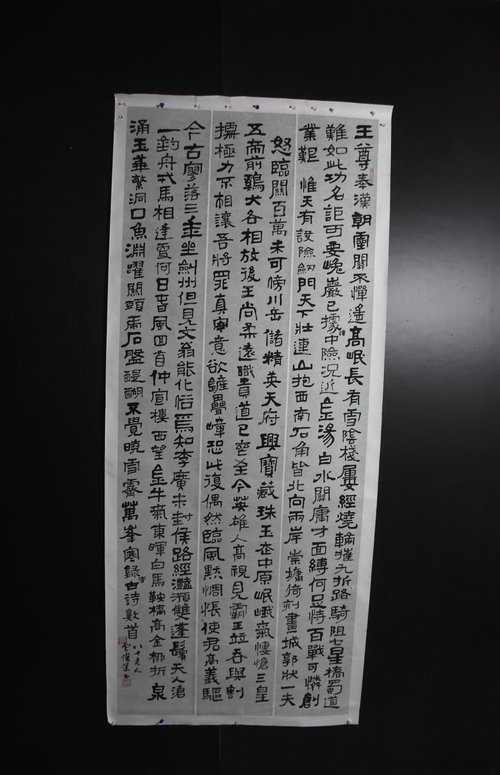 王尊奉漢朝靈關不憚遙高岷長有雪陰棧屢經燒輪摧九折路騎阻七星橋蜀道
難如此功名詎可要巉巖已據中險況近金湯白水關庸才面縛何足恃百戰可憐創
業艱惟天有設險劒門天下壯連山抱西南石角皆北向兩岸崇墉倚刻畫城郭狀一夫
怒臨關百萬未可傍川岳儲精英天府興寶藏珠玉走中原岷峨氣悽愴三皇
五帝前鷄犬各相放後王尚柔遠職貢道已喪至今英雄人高視見霸王竝吞與割
據極力不相讓吾將罪真宰意欲鏟疊嶂恐此復偶然臨風默惆悵使君高義驅
今古寥落三年坐劍州但見文翁能化俗焉知李廣未封侯路經灩澦雙蓬鬢天入滄
一釣舟戎馬相逢更何日春風回首仲宣樓西望金牛氣東暉白馬鞍橋高金柳折泉
涌玉華繁洞口魚淵躍關頭雨石盤醍醐不覺曉雪霽萬峯寒錄古詩數首
八十老人